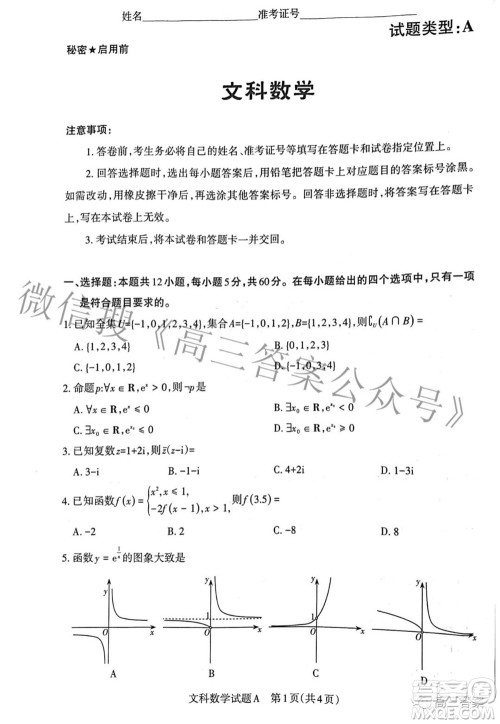 姓名 准考证号
试题类型:A
秘密★启用前
文科数学
注意事项:
1. 答卷前,考生务必将自己的姓名、准考证号等填写在答题卡和试卷指定位置上。
2. 回答选择题时,选出每小题答案后,用铅笔把答题卡上对应题目的答案标号涂黑。
如需改动,用橡皮擦干净后,再选涂其它答案标号。回答非选择题时,将答案写在答题卡上。
写在本试卷上无效。
3. 考试结束后,将本试卷和答题卡一并交回。
一、选择题:本题共12小题,每小题5分,共60分。在每小题给出的四个选项中,只有一项
是符合题目要求的。
1. 已知全集U={-1,0,1,2,3,4},集合A={-1,0,1,2},B={0,1,2,3},则∁U(A∩B)=
A. {1,2,3,4} B. {0,1,2,3}
C. {-1,3,4} D.
2. 命题p:∀x∈R,eˣ>0,则¬p是
A. ∀x∈R,eˣ≤0 B. ∀x∈R,eˣ<0
C. ∃x₀∈R,eˣ⁰≤0 D. ∃x₀∈R,eˣ⁰<0
3. 已知复数z=1+2i,则z̄(1+z)=
A. 3-i B. -1-i C. 4+2i D. 1-3i
4. 已知函数f(x)={x²,x≤1, -2f(x-1),x>1, 则f(3.5)=
A. -2 B. 2 C. -8 D. 8
5. 函数y=e^(1/x)的图象大致是
y O x
y 1 O x
y 1 O x
y O x
A B C D
文科数学试题A 第1页(共4页)
微信搜《高三答案公众号》